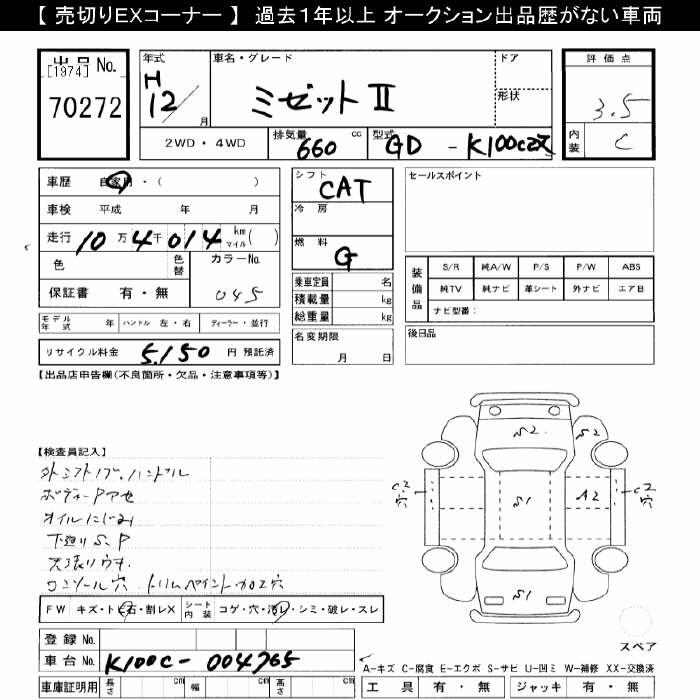 【 売切りEXコーナー 】 過去1年以上 オークション出品歴がない車両
出品 No.
[1974]
70272
年式
H
12/
月
車名・グレード
ミゼットⅡ
ドア
形状
2WD・4WD
排気量
660
cc
型式
GD - K100C
評価点
3.5
内装
C
車歴
自家用・( )
車検
平成 年 月
走行
10万4千014
km
マイル
( )
色
色替
カラーNo.
045
保証書
有・無
シフト
CAT
冷房
燃料
G
乗車定員 名
積載量 kg
総重量 kg
名変期限
月 日
セールスポイント
装備品
S/R 純A/W P/S P/W ABS
純TV 純ナビ 革シート 外ナビ エア B
ナビ型番:
後日品
モデル年式 年 ハンドル 左・右 ディーラー・並行
リサイクル料金 5,150 円 預託済
【出品店申告欄(不良箇所・欠品・注意事項等)】
【検査員記入】
外シフトノブ、ハンドル
ボディーアセ
オイルにじみ
下廻りS、P
コンソール穴 トリムペイント加工穴
S2
S2
C2
穴
S1
A2
C2
穴
S1
スペア
FW キズ・ト石・割レX シート内装 コゲ・穴・汚レ・シミ・破レ・スレ
登録 No.
車台 No. K100C-004765
車庫証明用 長さ cm 幅 cm 高さ cm
A-キズ C-腐食 E-エクボ S-サビ U-凹ミ W-補修 XX-交換済
工具 有・無 ジャッキ 有・無